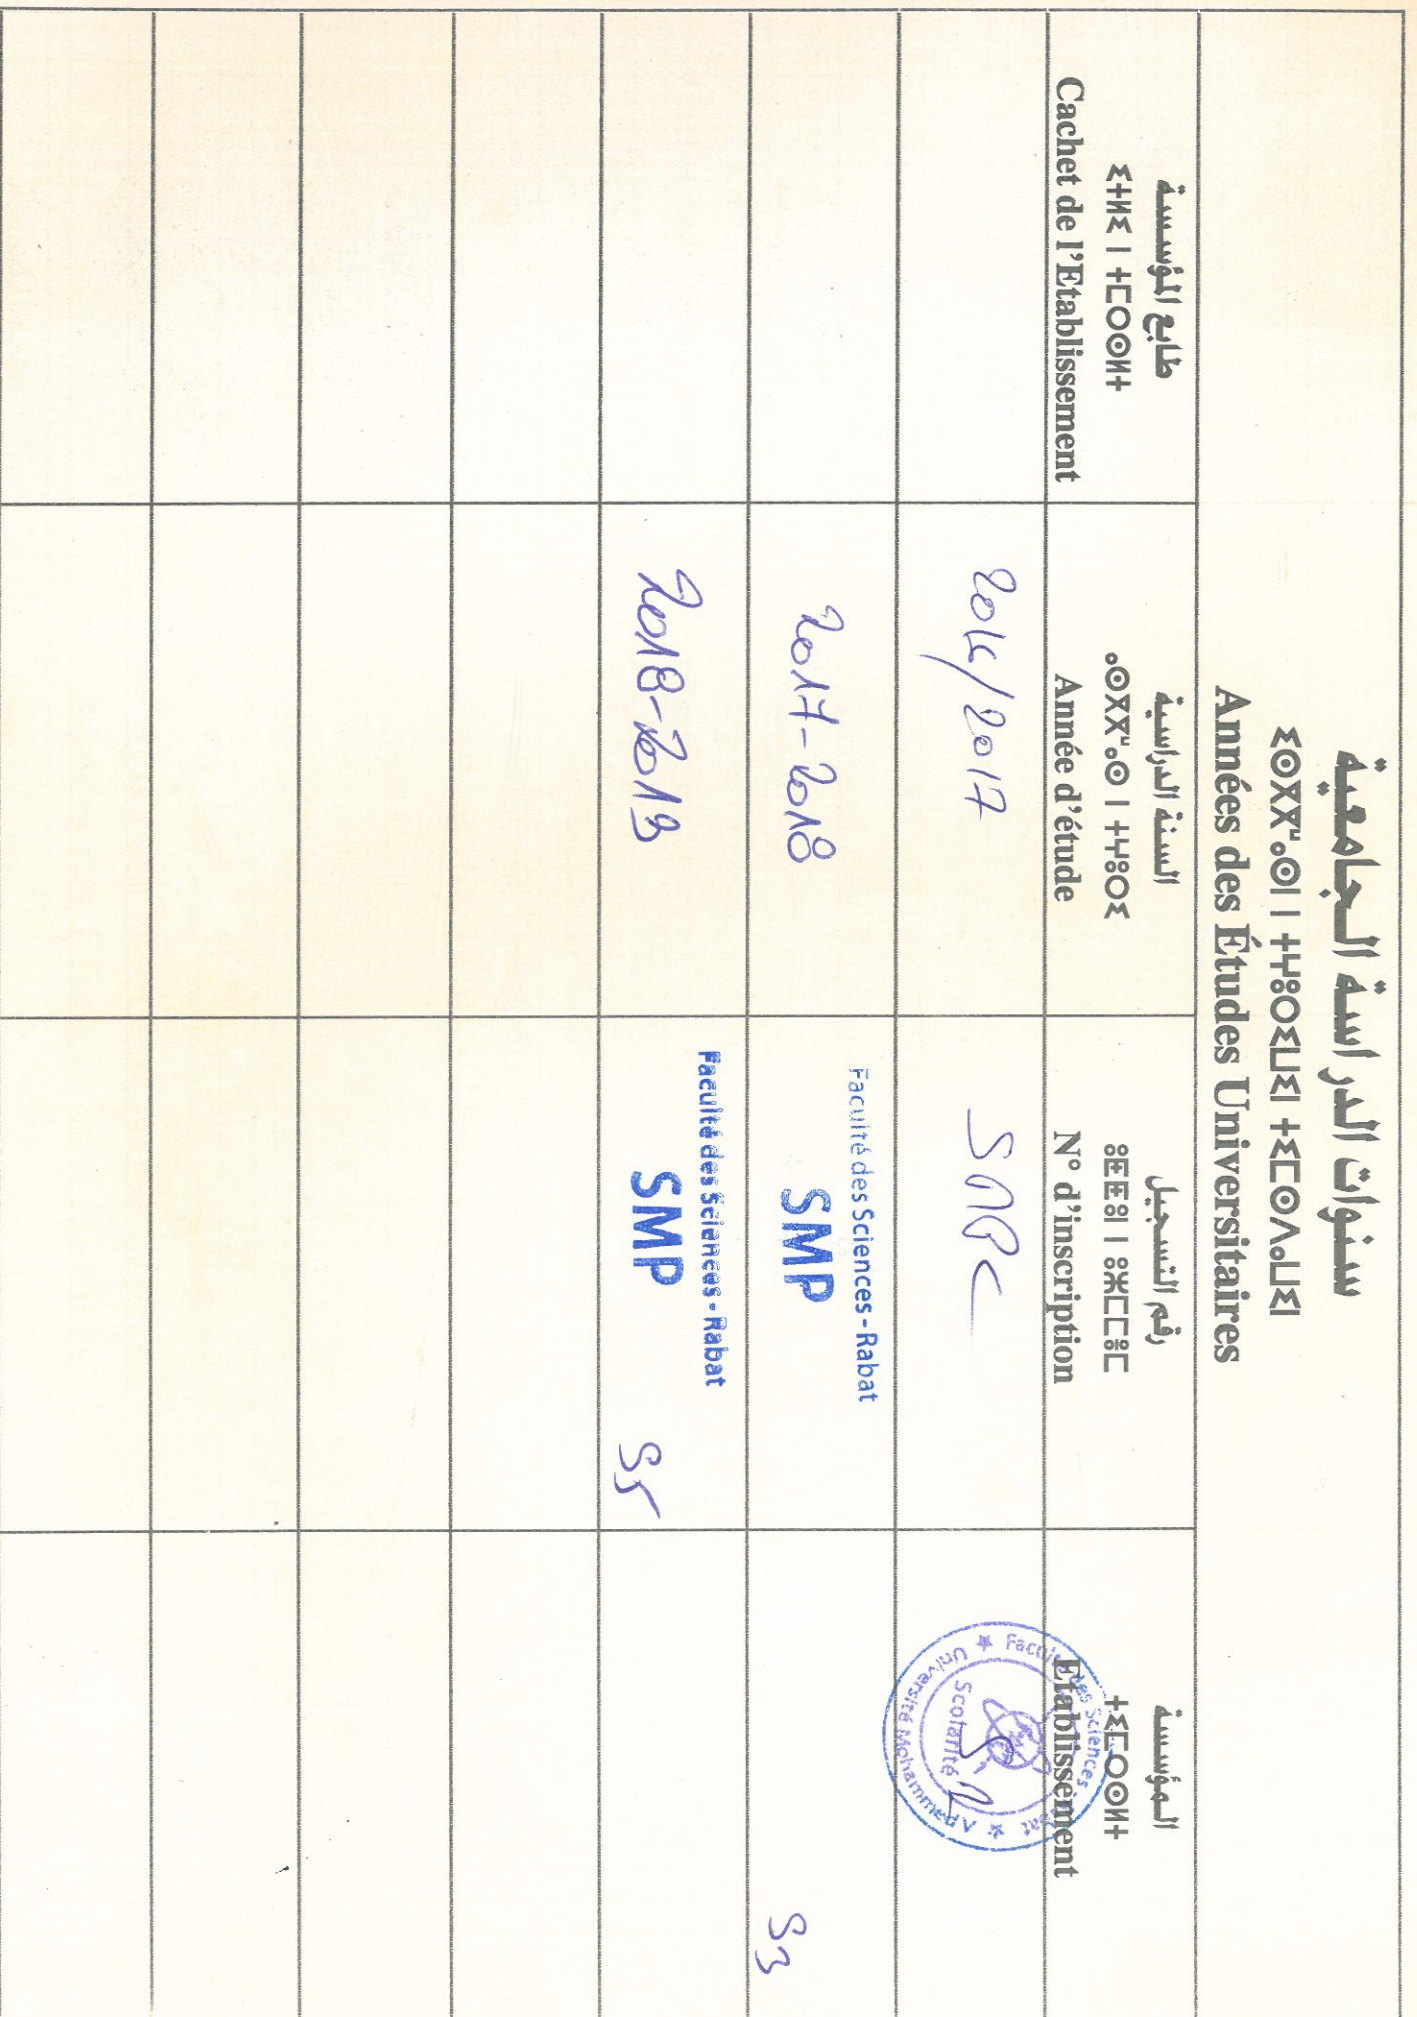 سنوات الدراسة الجامعية
ⵉⵙⴳⴳⵯⴰⵙⵏ ⵏ ⵜⵖⵓⵔⵉⵡⵉⵏ ⵜⵉⵎⵙⴷⴰⵡⵉⵏ
Années des Études Universitaires
طابع المؤسسة
ⵉⵜⵍⵉ ⵏ ⵜⵎⵔⵙⵍⵜ
Cachet de l'Etablissement
السنة الدراسية
ⴰⵙⴳⴳⵯⴰⵙ ⵏ ⵜⵖⵓⵔⵉ
Année d'étude
رقم التسجيل
ⵓⵟⵟⵓⵏ ⵏ ⵓⵣⵎⵎⵎⴻⵎ
N° d'inscription
المؤسسة
ⵜⵉⵎⵔⵙⵍⵜ
Etablissement
2016/2017
Faculté des Sciences
Université Mohammed V
Scolarité
2017-2018
Faculté des Sciences - Rabat
SMP
S3
2018-2019
Faculté des Sciences - Rabat
SMP
S5